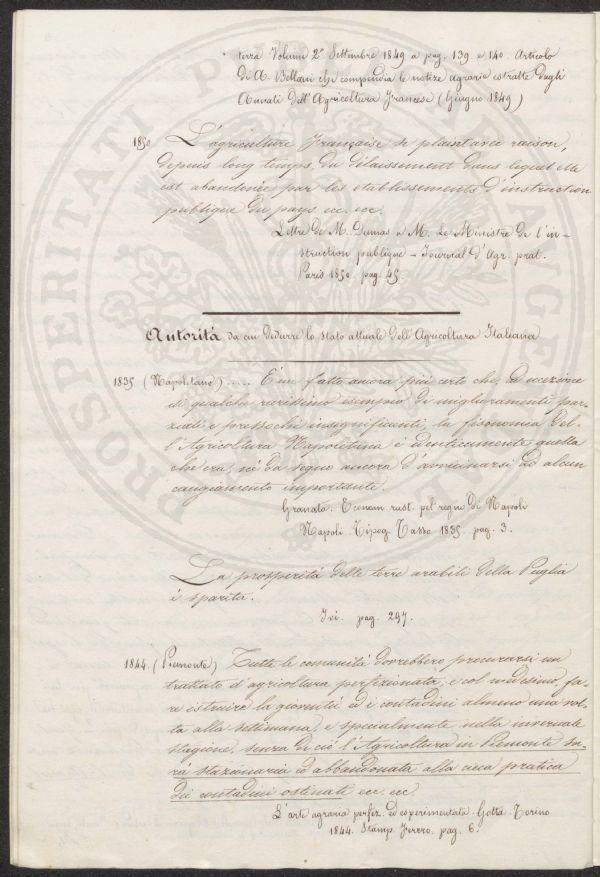 terra Volum 2º Settembre 1849 a pag. 139 e 140. Articolo
di A. Bellani che compendia le notize agrarie estratte dagli
Annali Dell'Agricoltura Francese (Giugno 1849)
1850 L'agriculture Française se plaint avec raison,
depuis long temps, du délaissement dans lequel elle
est abandonée par les etablissements d'instruction
publique du pays ecc. ecc.
Lettre de M. Dumas a M. Le Ministre de l'in-
struction publique – Journal d'Agr. prat.
Paris 1850. pag. 45.
Autorità da cui dedurre lo stato attuale Dell'Agricoltura Italiana
1835 (Napoletano) ..... E' un fatto ancora più certo che, ad eccezione
di qualche rarissimo esempio di miglioramenti par-
ziali e pressochè insignificanti, la fisonomia del-
l'Agricoltura Napoletana è identicamente quella
che era, nè dà segno ancora d'avvicinarsi ad alcun
cangiamento importante.
Granata. Econom. rust. pel regno di Napoli
Napoli. Tipog. Tasso 1835. pag. 3.
La prosperità delle terre arabili della Puglia
è sparita.
Ivi. pag. 297.
1844. (Piemonte) Tutte le comunità dovrebbero procurarsi un
trattato d'agricoltura perfezionata, e col medesimo fa-
re istruire la gioventù ed i contadini almeno una vol-
ta alla settimana, e specialmente nella invernale
stagione, senza di ciò l'Agricoltura in Piemonte sa-
rà stazionaria ed abbandonata alla cieca pratica
dei contadini ostinati ecc. ecc.
L'arte agraria perfez. ed esperimentata. Gotta. Torino
1844. Stamp. Ferrero. pag. 6.
PROSPERITATI PUBLICAE